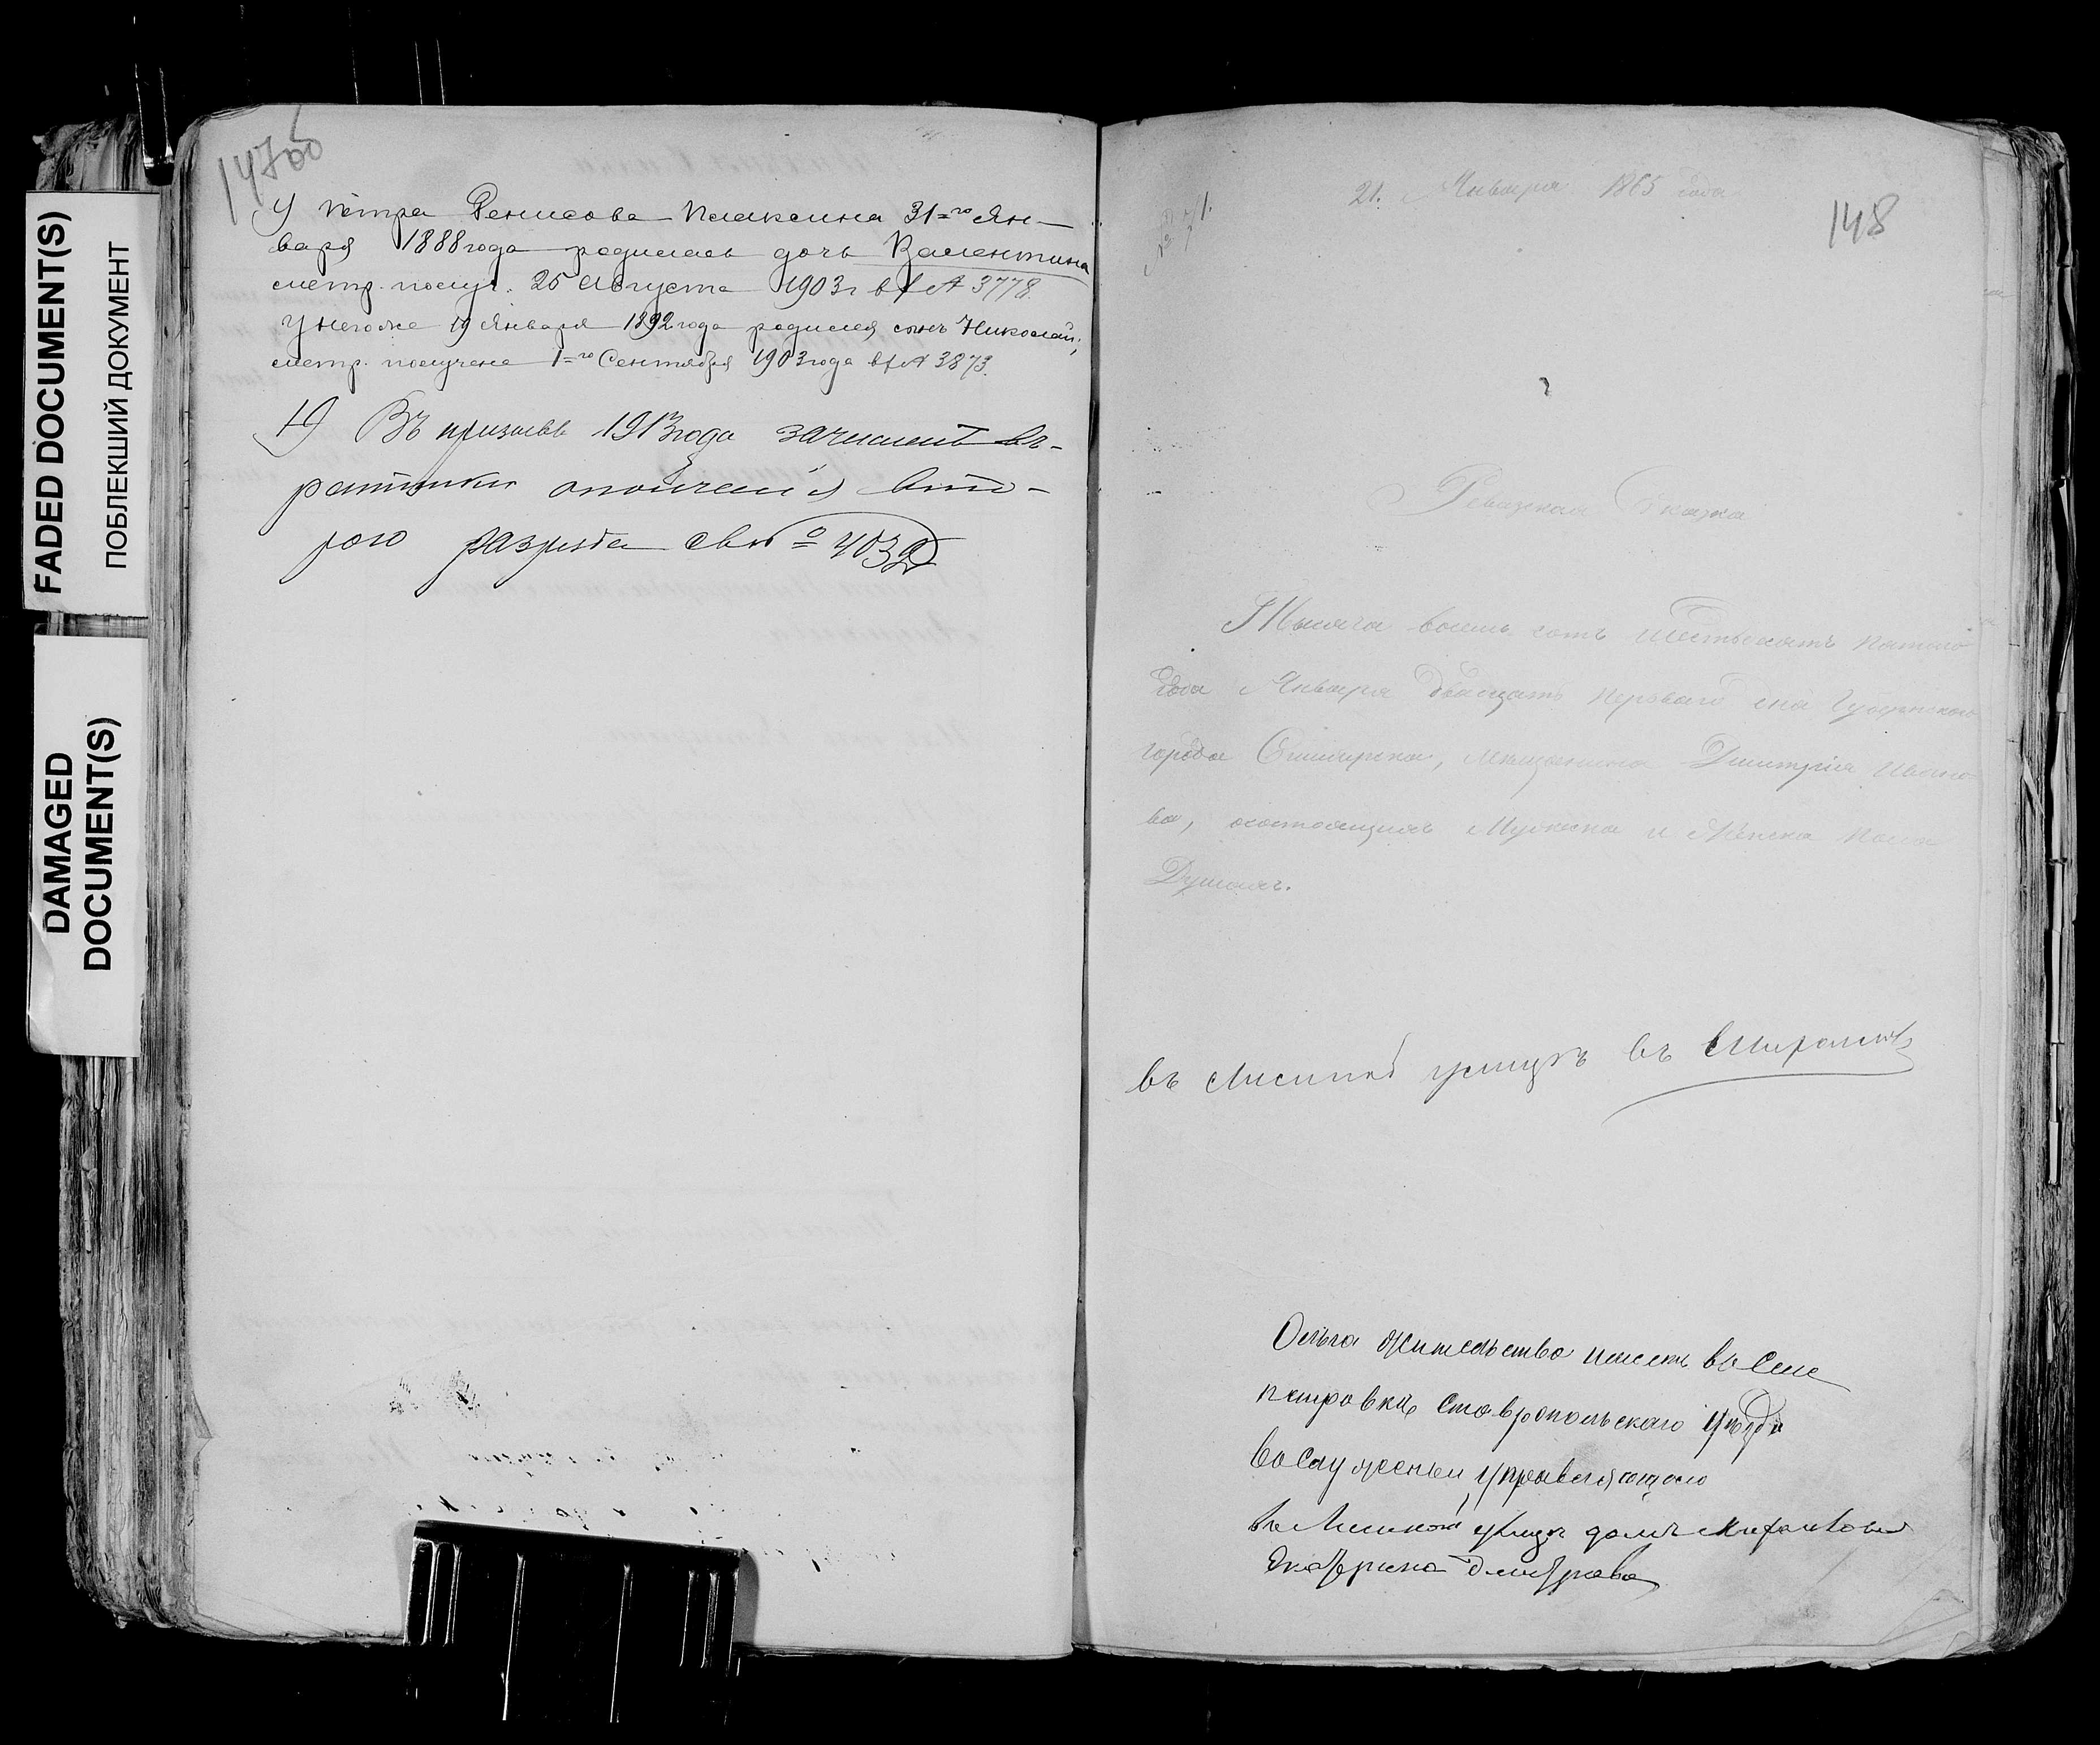 FADED DOCUMENT(S)
ПОБЛЕКШИЙ ДОКУМЕНТ
DAMAGED
DOCUMENT(S)
147об
У Петра Денисова Плаксина 31=го Ян-
варя 1888 года родилась дочь Валентина
метр. получ. 25 Августа 1903 г вх № 3778.
У него же 19 Января 1892 года родился сынъ Николай;
метр. получена 1=го Сентября 1903 года вх № 3873.
Въ призывѣ 1913 года зачисленъ въ-
ратники ополченія вто-
рого разряда 4032
21. Января 1865 года
148
Ревизская Сказка
Тысяча восемь сотъ шестьдесятъ пятаго
года Января двадцать перваго дня Губернскаго
города Симбирска, мѣщанина Дмитрія Ивано-
ва, о состоящихъ Мужеска и Женска пола
Душахъ.
въ Лисиной улицѣ въ
Ольга жительство имеетъ въ селе
петровке Ставропольского уезда
въ Услуженьи управляющего
въ Лисиной улице домъ
Екатерина Дмитриева